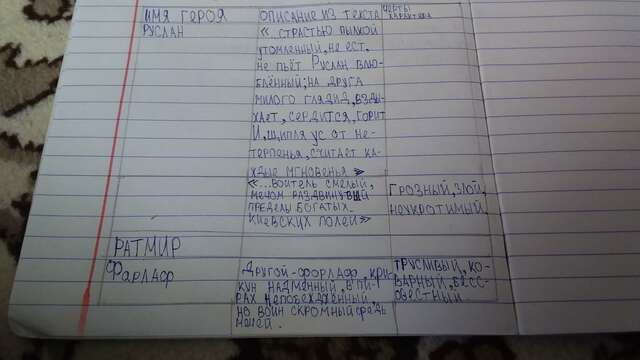 ИМЯ ГЕРОЯ ОПИСАНИЕ ИЗ ТЕКСТА ЧЕРТЫ ХАРАКТЕРА
РУСЛАН « СТРАСТЬЮ ПЫЛКОЙ
УТОМЛЕННЫЙ, НЕ ЕСТ,
НЕ ПЬЁТ РУСЛАН ВЛЮ-
БЛЁННЫЙ; НА ДРУГА
МИЛОГО ГЛЯДИД, ВЗДЫ-
ХАЕТ, СЕРДИТСЯ, ГОРИТ
И, ЩИПЛЯ УС ОТ НЕ-
ТЕРПЕНЬЯ, СЧИТАЕТ КА-
ЖДЫЕ МГНОВЕНЬЯ »
«...ВОИТЕЛЬ СМЕЛЫЙ,
МЕЧОМ РАЗДВИНУВШИЙ
ПРЕДЕЛЫ БОГАТЫХ
КИЕВСКИХ ПОЛЕЙ»
ГРОЗНЫЙ, ЗЛОЙ,
НЕУКРОТИМЫЙ.
РАТМИР
ФАРЛАФ
ДРУГОЙ-ФОРЛАФ, КРИ-
КУН НАДМЕННЫЙ, В ПИ-
РАХ НЕПОБЕЖДЕННЫЙ,
НО ВОИН СКРОМНЫЙ СРЕДЬ
МЕЧЕЙ.
ТРУСЛИВЫЙ, КО-
ВАРНЫЙ, БЕСС-
ОВЕСТНЫЙ.